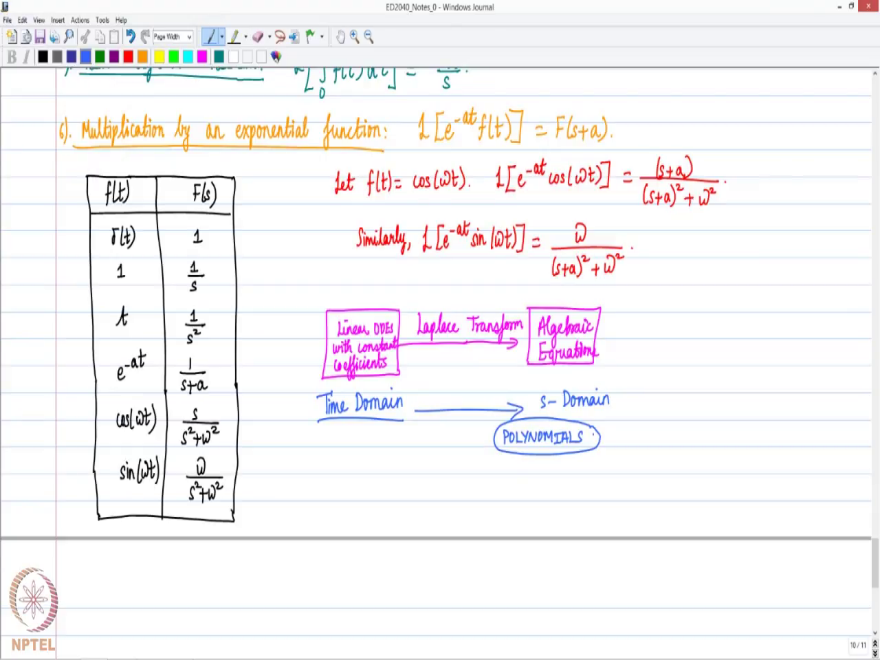 ED2040_Notes_0 - Windows Journal
File Edit View Insert Actions Tools Help
Page Width
B I
6). Multiplication by an exponential function: L[e^{-at}f(t)] = F(s+a).
f(t) F(s)
δ(t) 1
1 1/s
t 1/s²
e^{-at} 1/(s+a)
cos(ωt) s/(s²+ω²)
sin(ωt) ω/(s²+ω²)
Let f(t) = cos(ωt). L[e^{-at}cos(ωt)] = (s+a)/((s+a)²+ω²).
Similarly, L[e^{-at}sin(ωt)] = ω/((s+a)²+ω²).
Linear ODEs
with constant
coefficients
Laplace Transform
Algebraic
Equations
Time Domain
s-Domain
POLYNOMIALS.
NPTEL
10 / 11